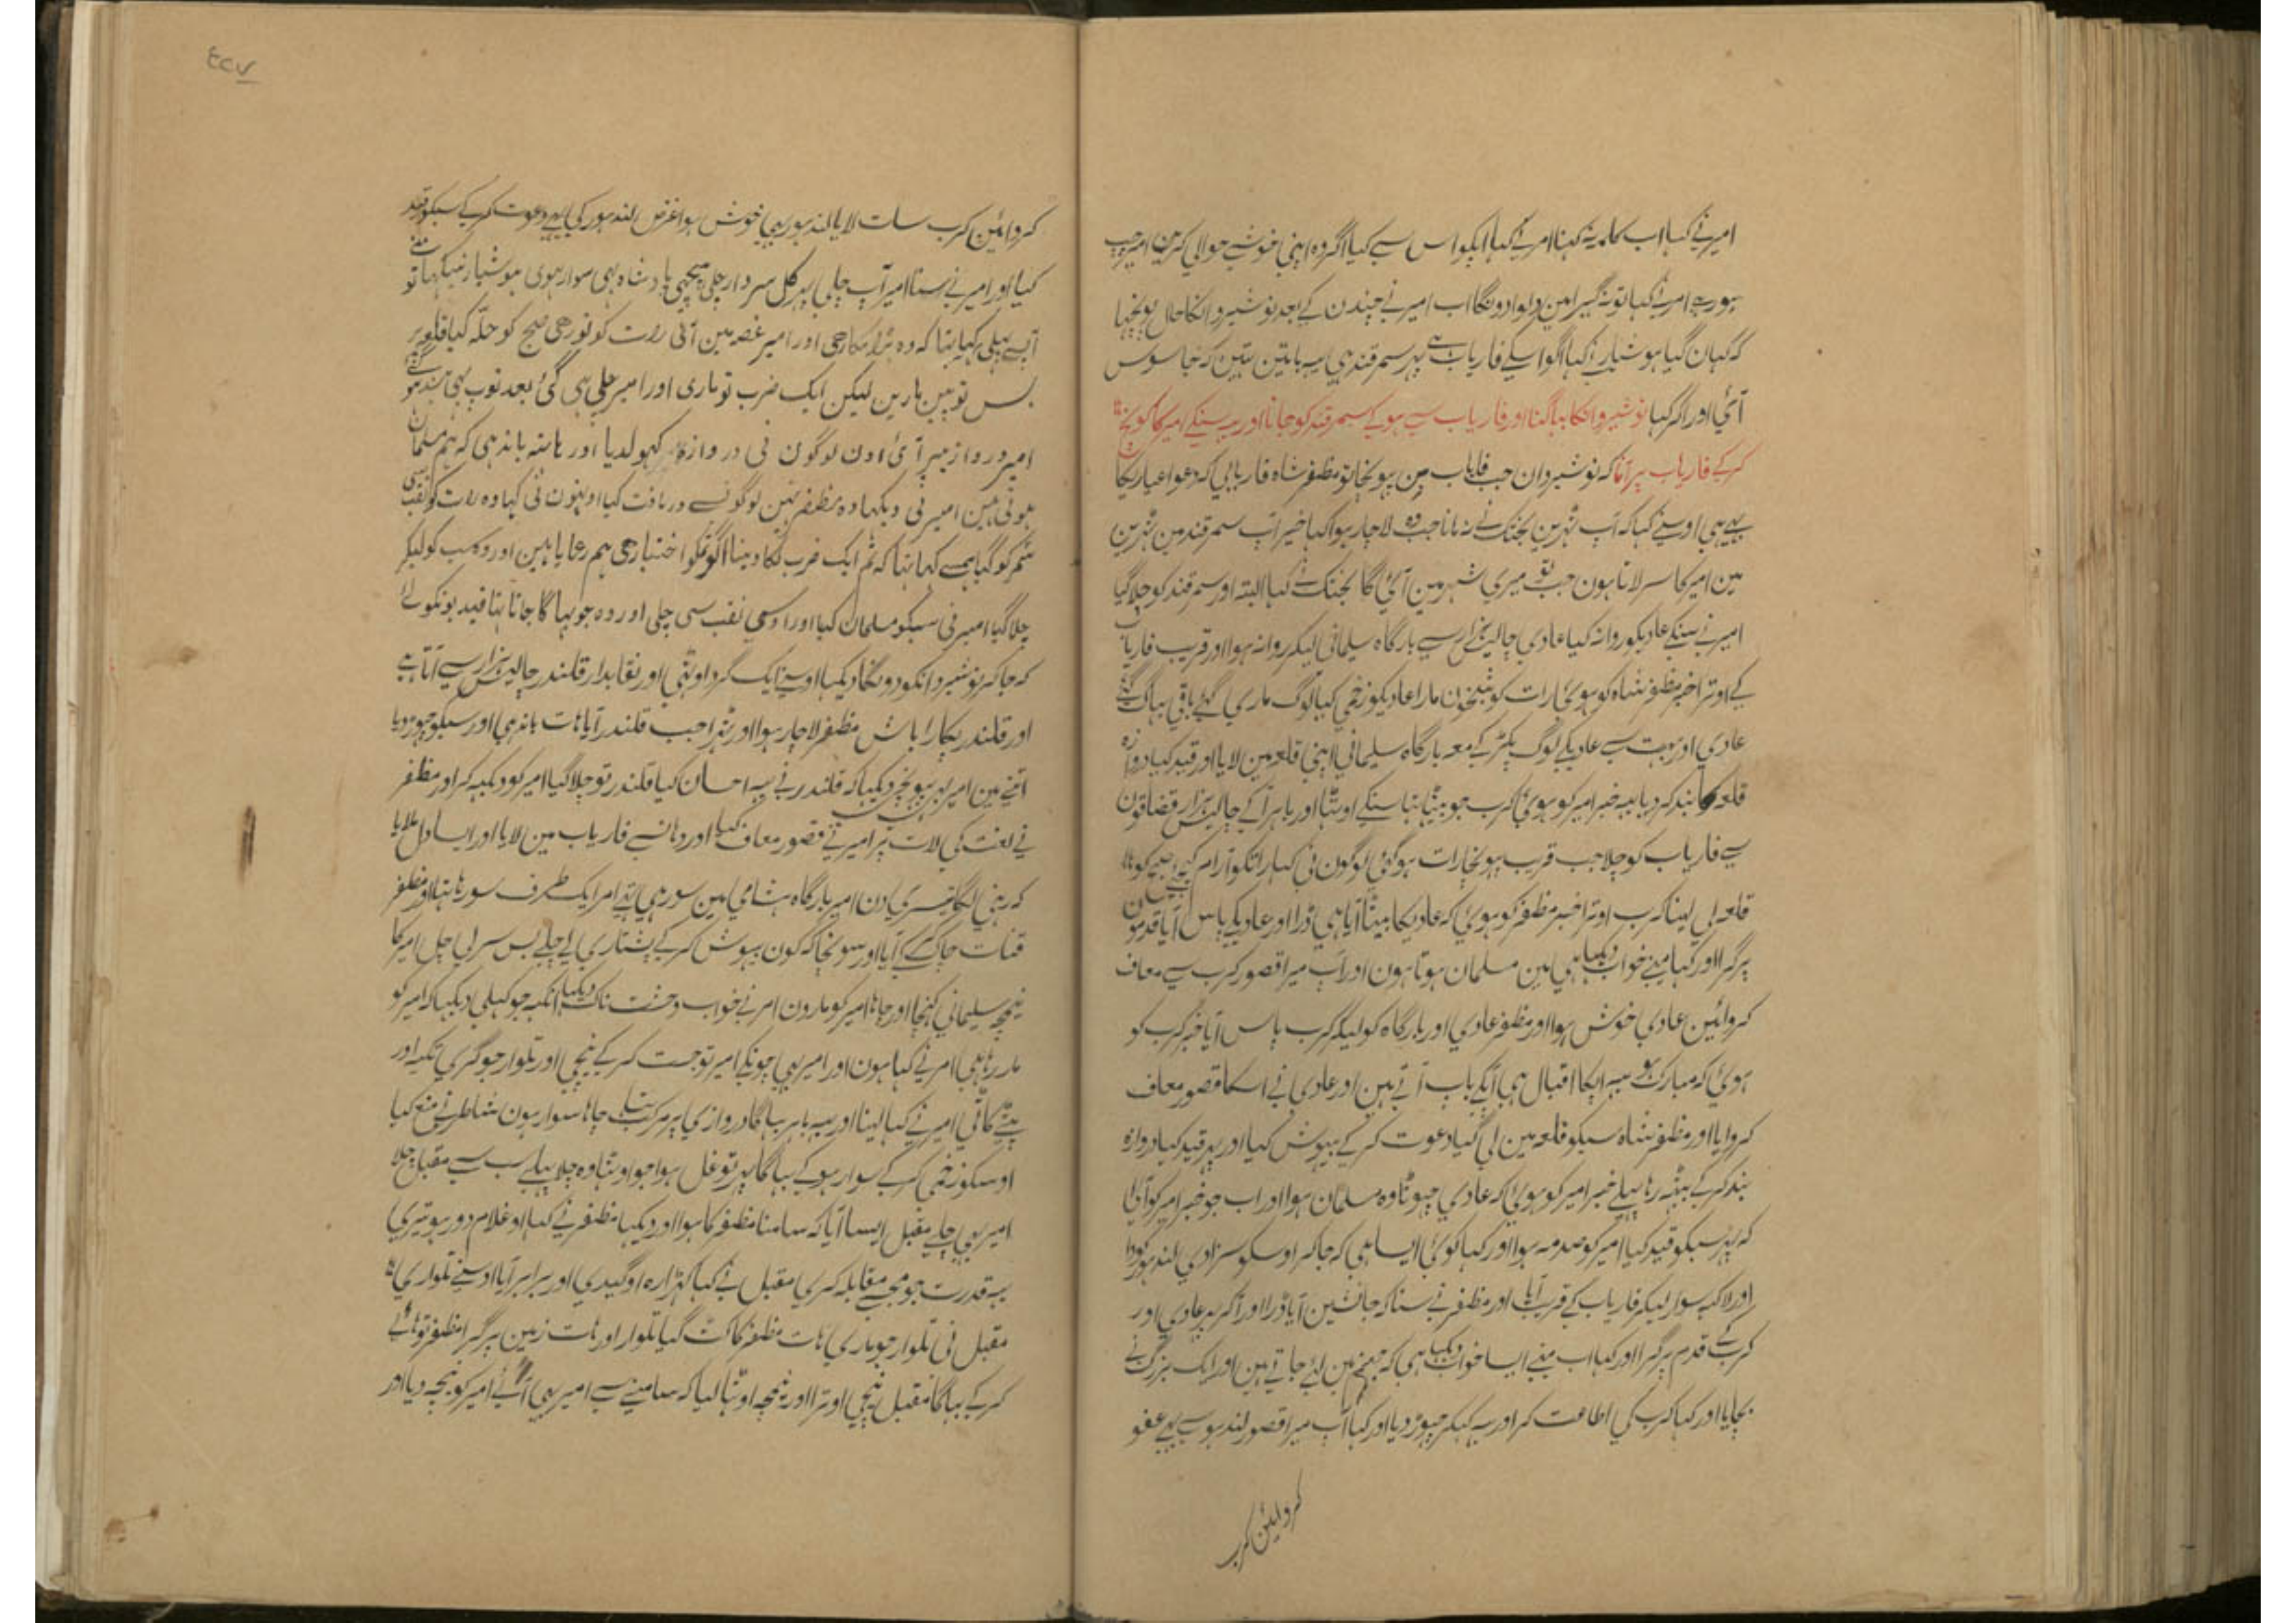 امیر نے کہا اب کلمہ یہ کہنا امر نے کہا ایکو اس سے کیا اگر وہ اپنی خوشی حوالی کرین امیر چپ
ہو رہے امر نے کہا تو نہ گیر امین دلوا دونگا اب امیر نے چند دن کے بعد نوشیروانکا حال پونچہا
کہ کہان گیا ہوشیار نے کہا اگو اسکے فاریاب ہے پہر سمرقند ہی یہ باتین تہین کہ جاسوس
آئی اور اکر کہا نوشیروانکا بہاگنا اور فاریاب سے ہو کے سمرقند کو جانا اور یہ سنکے امیر کا کونچ
کر کے فاریاب پر آنا کہ نوشیروان جب فاریاب مین پہونچا تو مظفر شاہ فاریابی کہ دعوا عیاریکا
بہی ہی اوسنے کہا کہ آپ ٹہرین بختک نے نہ مانا جب وہ لاچار ہوا کہا خیر آپ سمرقند مین ٹہرین
مین امیر کا سر لاتا ہون جب تو میری شہر مین آئی گا بختک نے کہا البتہ اور سمرقند کو چلا گیا
امیر نے سنکے عادیکو روانہ کیا عادی چالیس ہزار سے بارگاہ سلیمانی لیکر روانہ ہوا اور قریب فاریاب
کے اوترا خبر مظفر شاہ کو ہوئی رات کو شبخون مارا عادیکو زخمی کیا لوگ ماری گئے باقی بہاگ گئے
عادی اور بہت سے عادیکے لوگ پکڑ کے معہ بارگاہ سلیمانی اپنی قلعہ مین لایا اور قید کیا دروازہ
قلعہ کا بند کر دیا یہ خبر امیر کو ہوئی کرب جو بیٹہا تہا سنکے اوٹہا اور باہر آ کے چالیس ہزار قضاقون
سے فاریاب کو چلا جب قریب پہونچا رات ہو گئی لوگون نی کہا راتکو آرام کیجیے صبح کو
قلعہ لی لینا کرب اوترا خبر مظفر کو ہوئی کہ عادیکا بیٹا آیا ہی ڈرا اور عادیکے پاس آیا قدمون
پر گرا اور کہا مینے خواب دیکہا ہی مین مسلمان ہوتا ہون اور آپ میرا قصور کرب سے معاف
کروائین عادی خوش ہوا اور مظفر عادی اور بارگاہ کو لیکر کرب پاس آیا خبر کرب کو
ہوئی کہ مبارک ہو یہ اپکا اقبال ہی آپکے باپ آتے ہین اور عادی نے اسکا قصور معاف
کروایا اور مظفر شاہ سبکو قلعہ مین لی گیا دعوت کر کے بیہوش کیا اور پہر قید کیا دروازہ
بند کر کے بیٹہ رہا پہلے خبر امیر کو ہوئی کہ عادی چہوٹا وہ مسلمان ہوا اور اب جو خبر امیر کو آئی
کہ پہر سبکو قید کیا امیر کو صدمہ ہوا اور کہا کوئی ایسا ہی کہ جا کر اوسکو سزا دی لندہور کودا
اور لاکہہ سوار لیکر فاریاب کے قریب آیا اور مظفر نے سنا کہ جانشین آیا ڈرا اور آکر پہر عادی اور
کرب کے قدم پر گرا اور کہا اب مینے ایسا خواب دیکہا ہی کہ جہنم مین لئے جاتے ہین اور ایک بزرگ نے
بچایا اور کہا کرب کی اطاعت کر اور یہ کہکر چہوڑ دیا اور کہا آپ میرا قصور لندہور سے بہی عفو
کروائین کرب
۴۲۷
کروائین کرب سات لایا لندہور بہی خوش ہوا غرض لندہور کی بہی دعوت کر کے سبکو قید
کیا اور امیر نے سنا امیر آپ چلی پہر کل سردار چلی پیچہی بادشاہ بہی سوار ہوی ہوشیار نیکہا تو
آپ سے پہلی کہا تہا کہ وہ بڑا مکار ہی اور امیر غصہ مین آئی رات کو تو رہی صبح کو حلّہ کیا قلعہ پر
بس توپین مارین لیکن ایک ضرب تو ماری اور امیر چلی ہی گئی بعد توپ بہی بند ہوئی
امیر دروازہ پر آئی اون لوگون نی دروازہ کہولدیا اور ہاتہ باندہی کہ ہم مسلمان
ہوتی ہین امیر نی دیکہا وہ مظفر نہین لوگونسے دریافت کیا اوہنون نی کہا وہ رات کو نقب سی
شہر کو گیا ہمسے کہا تہا کہ تم ایک ضرب لگا دینا اگو تمکو اختیار ہی ہم رعایا ہین اور وہ سب کو لیکر
چلا گیا امیر نی سبکو مسلمان کیا اور اوسی نقب سی چلی اور وہ جو بہاگا جاتا تہا قیدیونکو لئے
کہ جا کر نوشیروانکو دونگا دیکہا اوسنے ایک گرد اوٹہی اور نقابدار قلندر چالیس ہزار سے آتا ہے
اور قلندر پکارا باش مظفر لاچار ہوا اور ٹہرا جب قلندر آیا ہات باندہی اور سبکو چہوڑ دیا
اتنے مین امیر بہی پہونچی دیکہا کہ قلندر نے یہ احسان کیا قلندر تو چلا گیا امیر کو دیکہہ کر اور مظفر
نے لعنت کی لات پر امیر نے قصور معاف کیا اور وہانسے فاریاب مین لایا اور ایسا دل ملایا
کہ رہنی لگا تیسری دن امیر بارگاہ شامی مین سو رہی تہے امر ایک طرف سو رہا تہا اور مظفر
قنات چاک کر کے آیا اور سونچا کہ کون بیہوش کر کے پشتاری لے چلے بس سر لی چل امیر کا
نیمچہ سلیمانی کہنچا اور چاہا امیر کو مارون امر نے خواب وحشت ناک دیکہا آنکہہ جو کہلی دیکہا کہ امیر کو
مار رہا ہی امر نے کہا ہون اور امیر بہی چونکے امیر تو جست کر کے بچی اور تلوار جو گری تکیہ اور
پٹی کاٹی امیر نے کہا لینا اور یہ باہر بہاگا دروازی پر مرکب تہا چاہا سوار ہون شاطر نے منع کیا
اوسکو زخمی کر کے سوار ہو کے بہاگا پہر تو غل ہوا جو اوٹہا وہ چلا پہلے سب سے مقبل چلا
امیر بہی چلے مقبل ایسا آیا کہ سامنا مظفر کا ہوا اور دیکہا مظفر نے کہا او غلام دور ہو تیری
یہ قدرت جو مجہسے مقابلہ کری مقبل نے کہا کہڑا رہ او گیدی اور برابر آیا اوسنے تلوار ماری
مقبل نی تلوار جو ماری ہات مظفر کا کٹ گیا تلوار اور ہات زمین پر گرا مظفر تو ہائے
کر کے بہاگا مقبل نیچی اوترا اور نیمچہ اوٹہا لیا کہ سامنے سے امیر بہی آئے امیر کو نیمچہ دیا اور